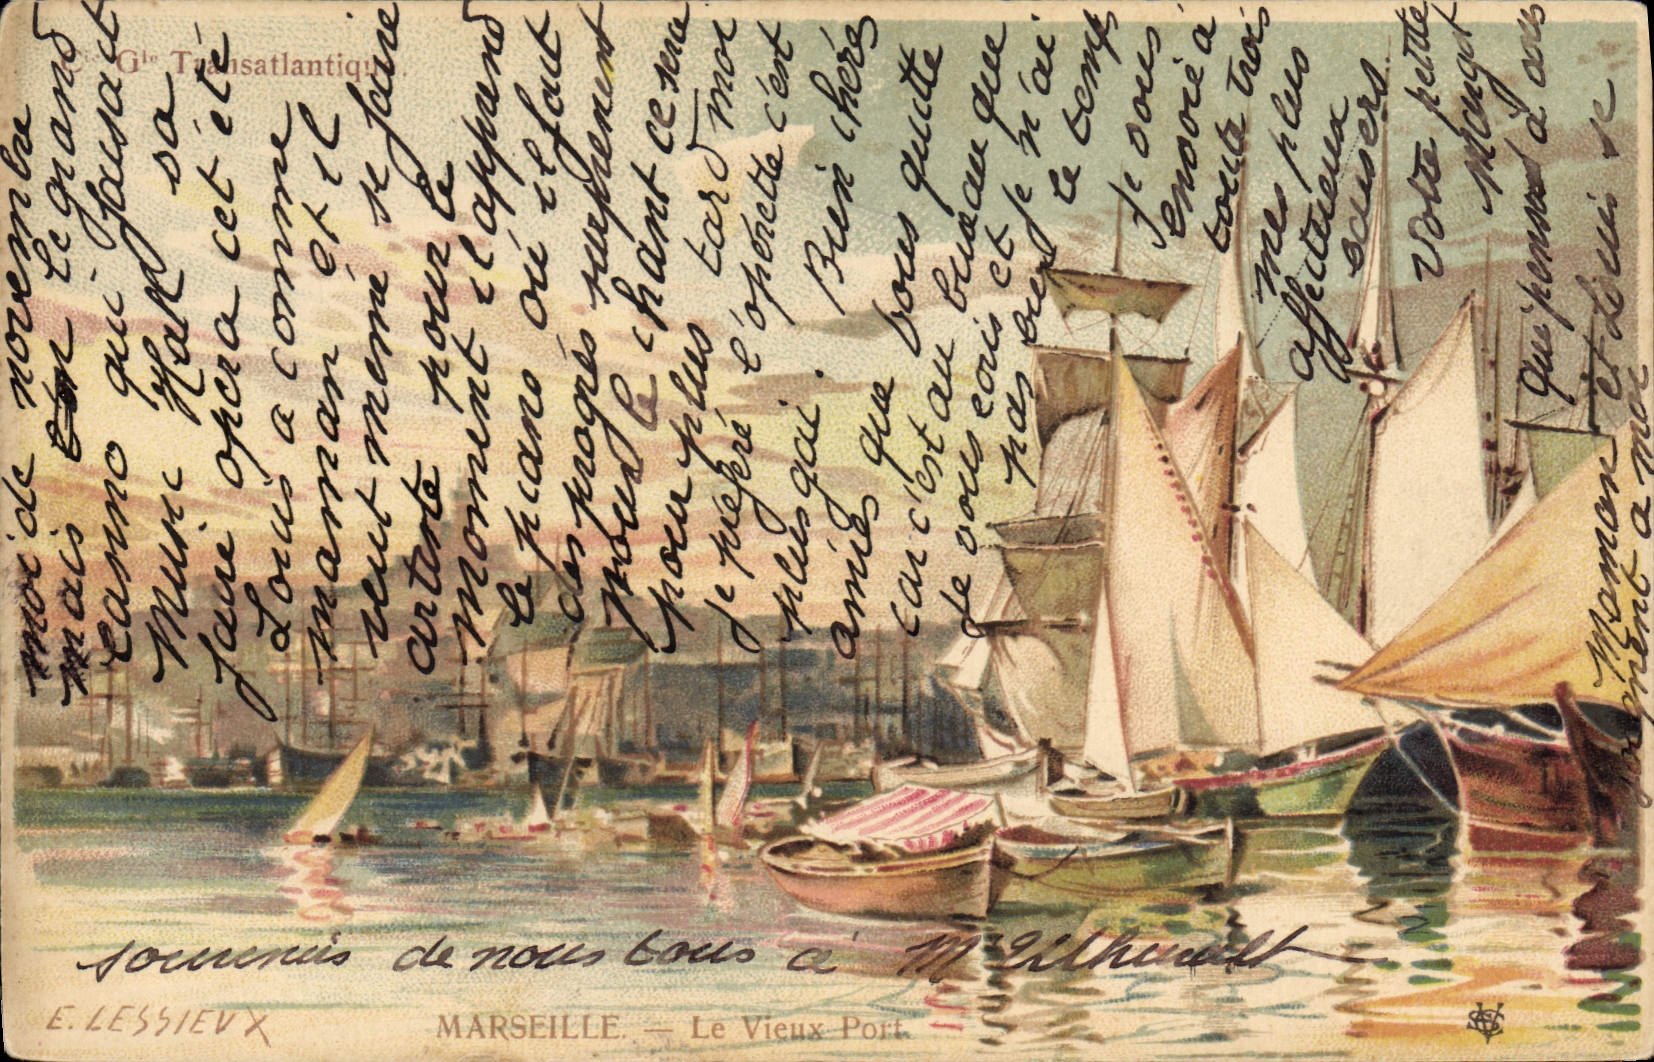 Cie Gle Transatlantique.
moi de novembre
mais le grand
casino qui faisait
Music Hall va
faire opera cet été
Louis a comme
maman et il
veut même se faire
artiste pour le
moment il apprend
le piano où il fait
des progrès surprenant
pour le chant ce sera
pour plus tard moi
je préfère l'opérette c'est
plus gai. Bien chères
amies que vous quitte
car c'est au bureau que
je vous écris et je n'ai
pas bien le temps
Je vous
envoie à
toute trois
mes plus
affectueux
baisers
votre petite
Margot
qui pense à vous
Maman et Louis se
joignent a moi
souvenirs de nous tous à Mr
E. LESSIEUX
MARSEILLE. — Le Vieux Port.